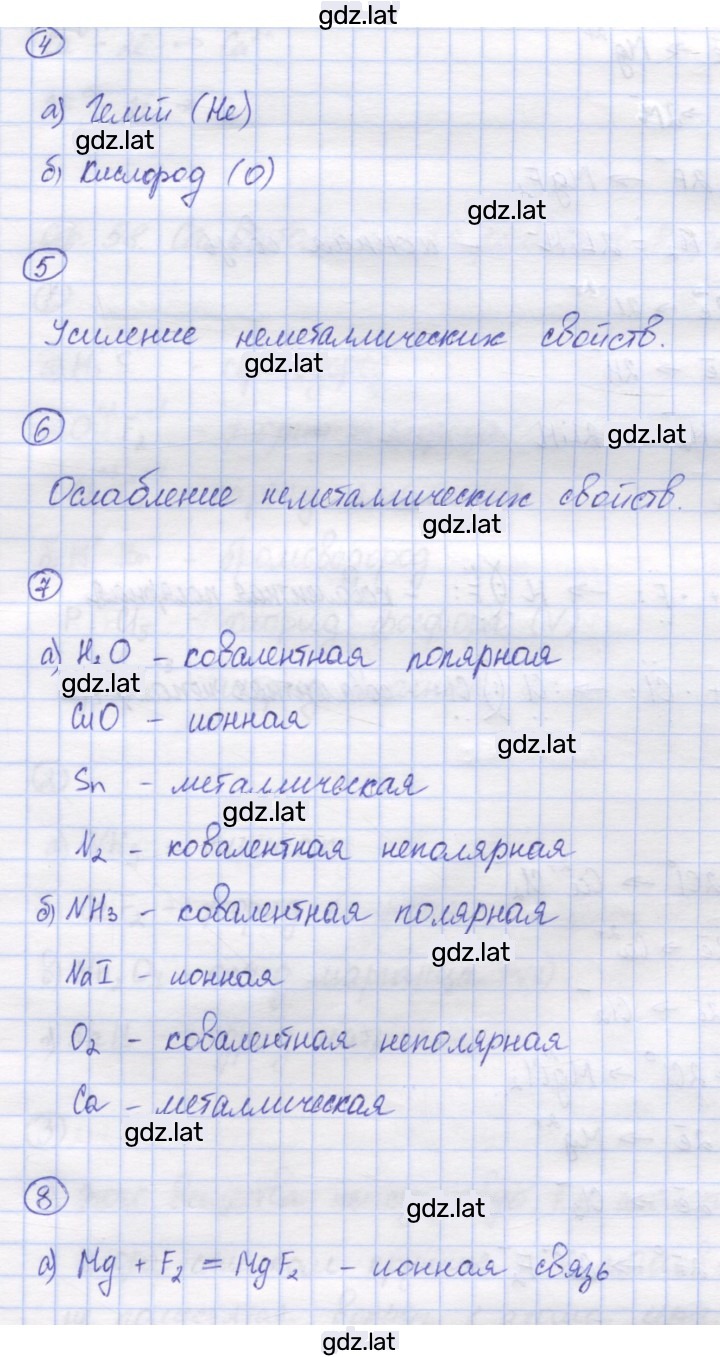 gdz.lat
4
а) Гелий (He)
gdz.lat
б) Кислород (O)
gdz.lat
5
Усиление неметаллических свойств.
gdz.lat
6
gdz.lat
Ослабление неметаллических свойств.
gdz.lat
7
а) H₂O – ковалентная полярная
gdz.lat
CuO – ионная
gdz.lat
Sn – металлическая
gdz.lat
N₂ – ковалентная неполярная
б) NH₃ – ковалентная полярная
gdz.lat
NaI – ионная
O₂ – ковалентная неполярная
Ca – металлическая
gdz.lat
8
gdz.lat
а) Mg + F₂ = MgF₂ – ионная связь
gdz.lat